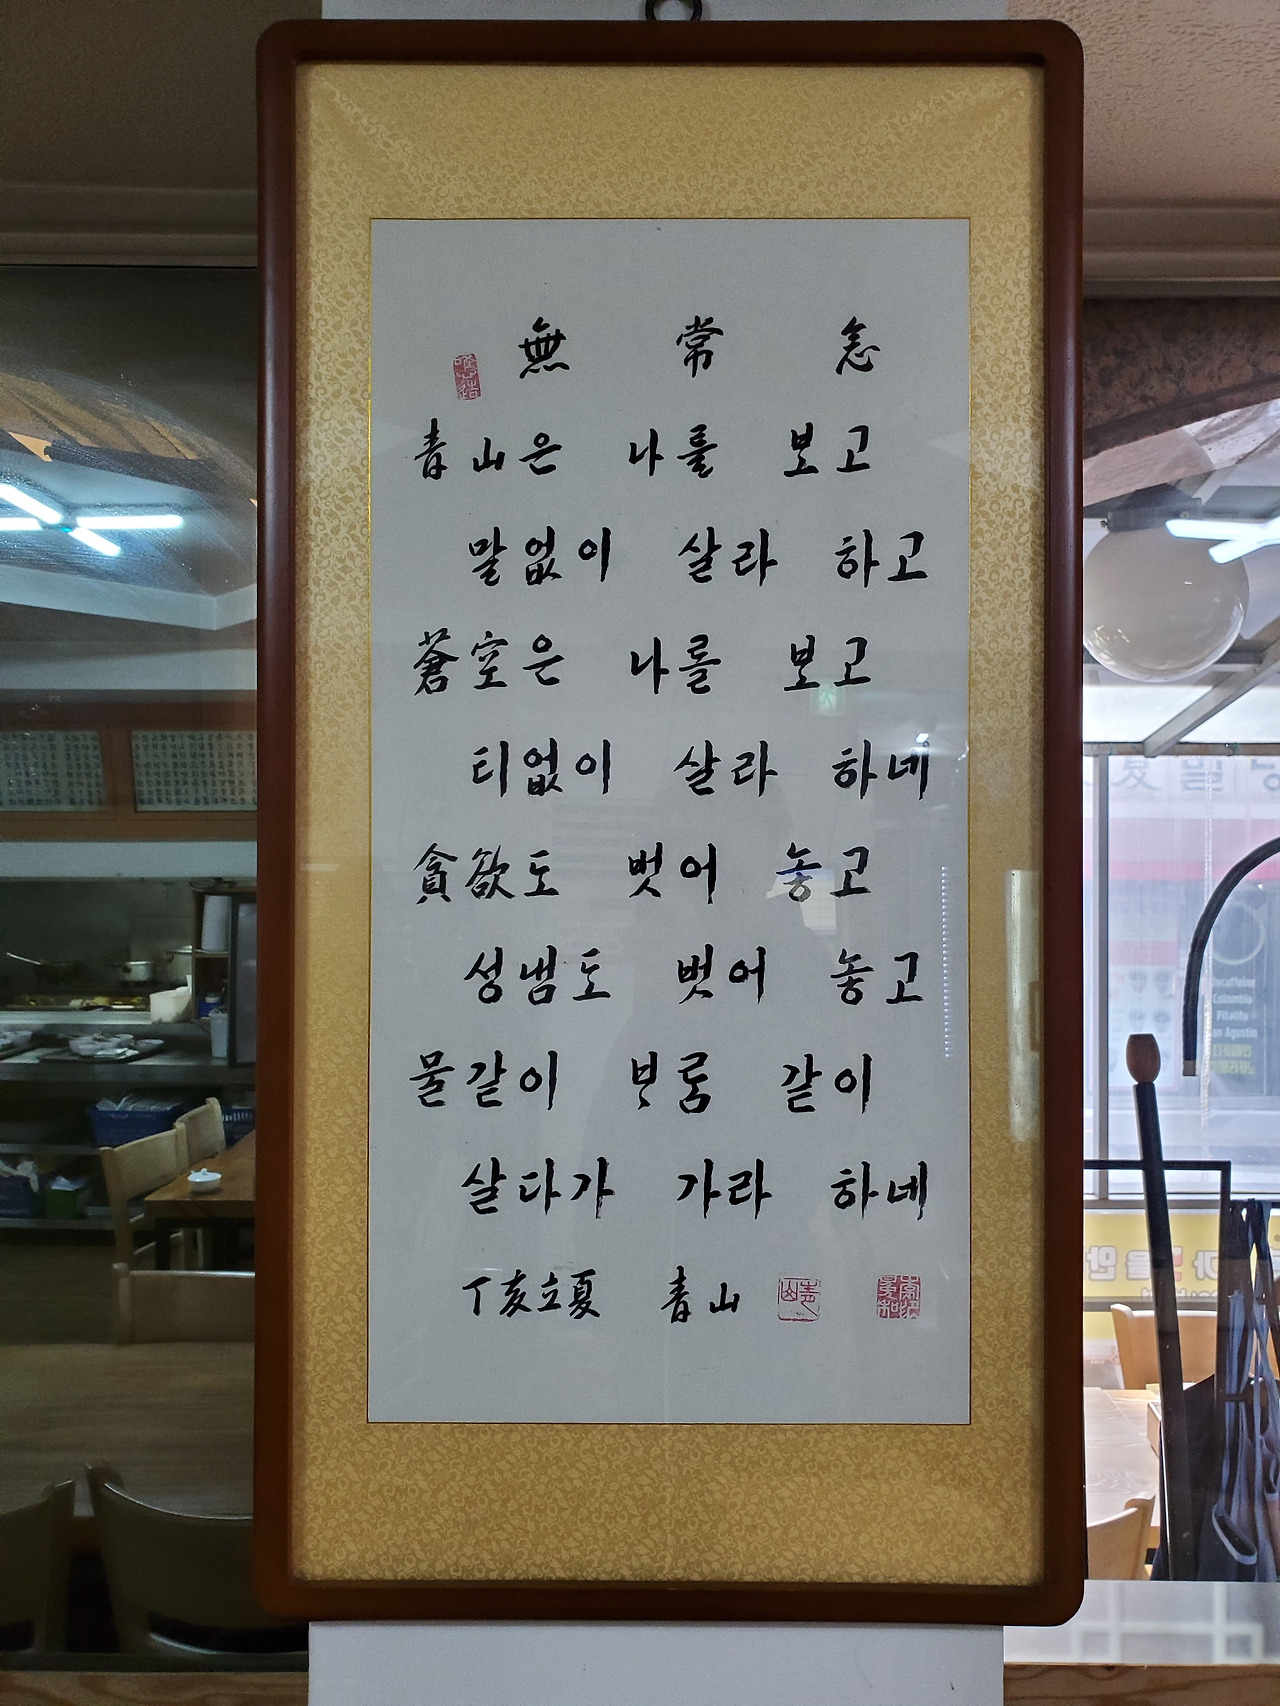 無 常 念
青山은 나를 보고
말없이 살라 하고
蒼空은 나를 보고
티없이 살라 하네
貪欲도 벗어 놓고
성냄도 벗어 놓고
물같이 ᄇᆞᄅᆞᆷ 같이
살다가 가라 하네
丁亥立夏 青山
Colombia
Pitalito
Agustin